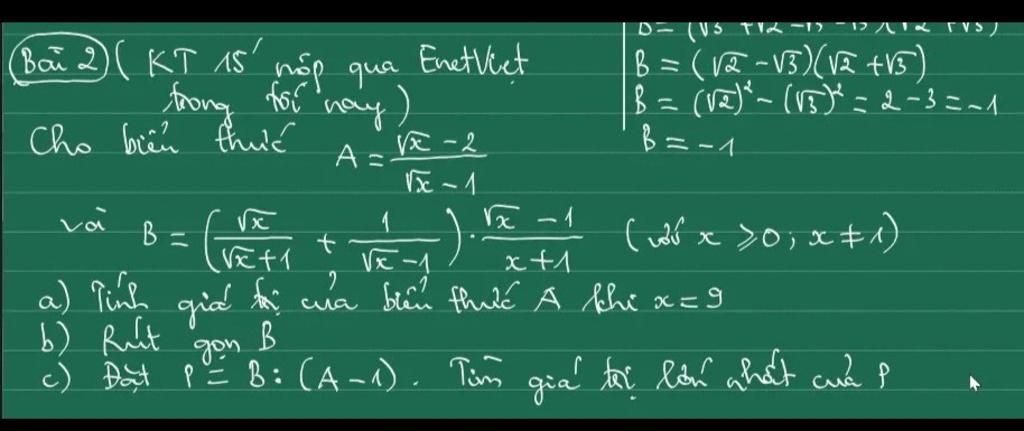 Bài 2 ( KT 15' nộp qua EnetViet
trong tối nay)
Cho biểu thức A = \frac{\sqrt{x} - 2}{\sqrt{x} - 1}
và B = \left(\frac{\sqrt{x}}{\sqrt{x}+1} + \frac{1}{\sqrt{x}-1}\right) \cdot \frac{\sqrt{x} - 1}{x+1} (với x ⩾ 0; x ≠ 1)
a) Tính giá trị của biểu thức A khi x = 9
b) Rút gọn B
c) Đặt P = B : (A - 1). Tìm giá trị lớn nhất của P
B = (√2 - √3)(√2 + √3)
B = (√2)² - (√3)² = 2 - 3 = -1
B = -1